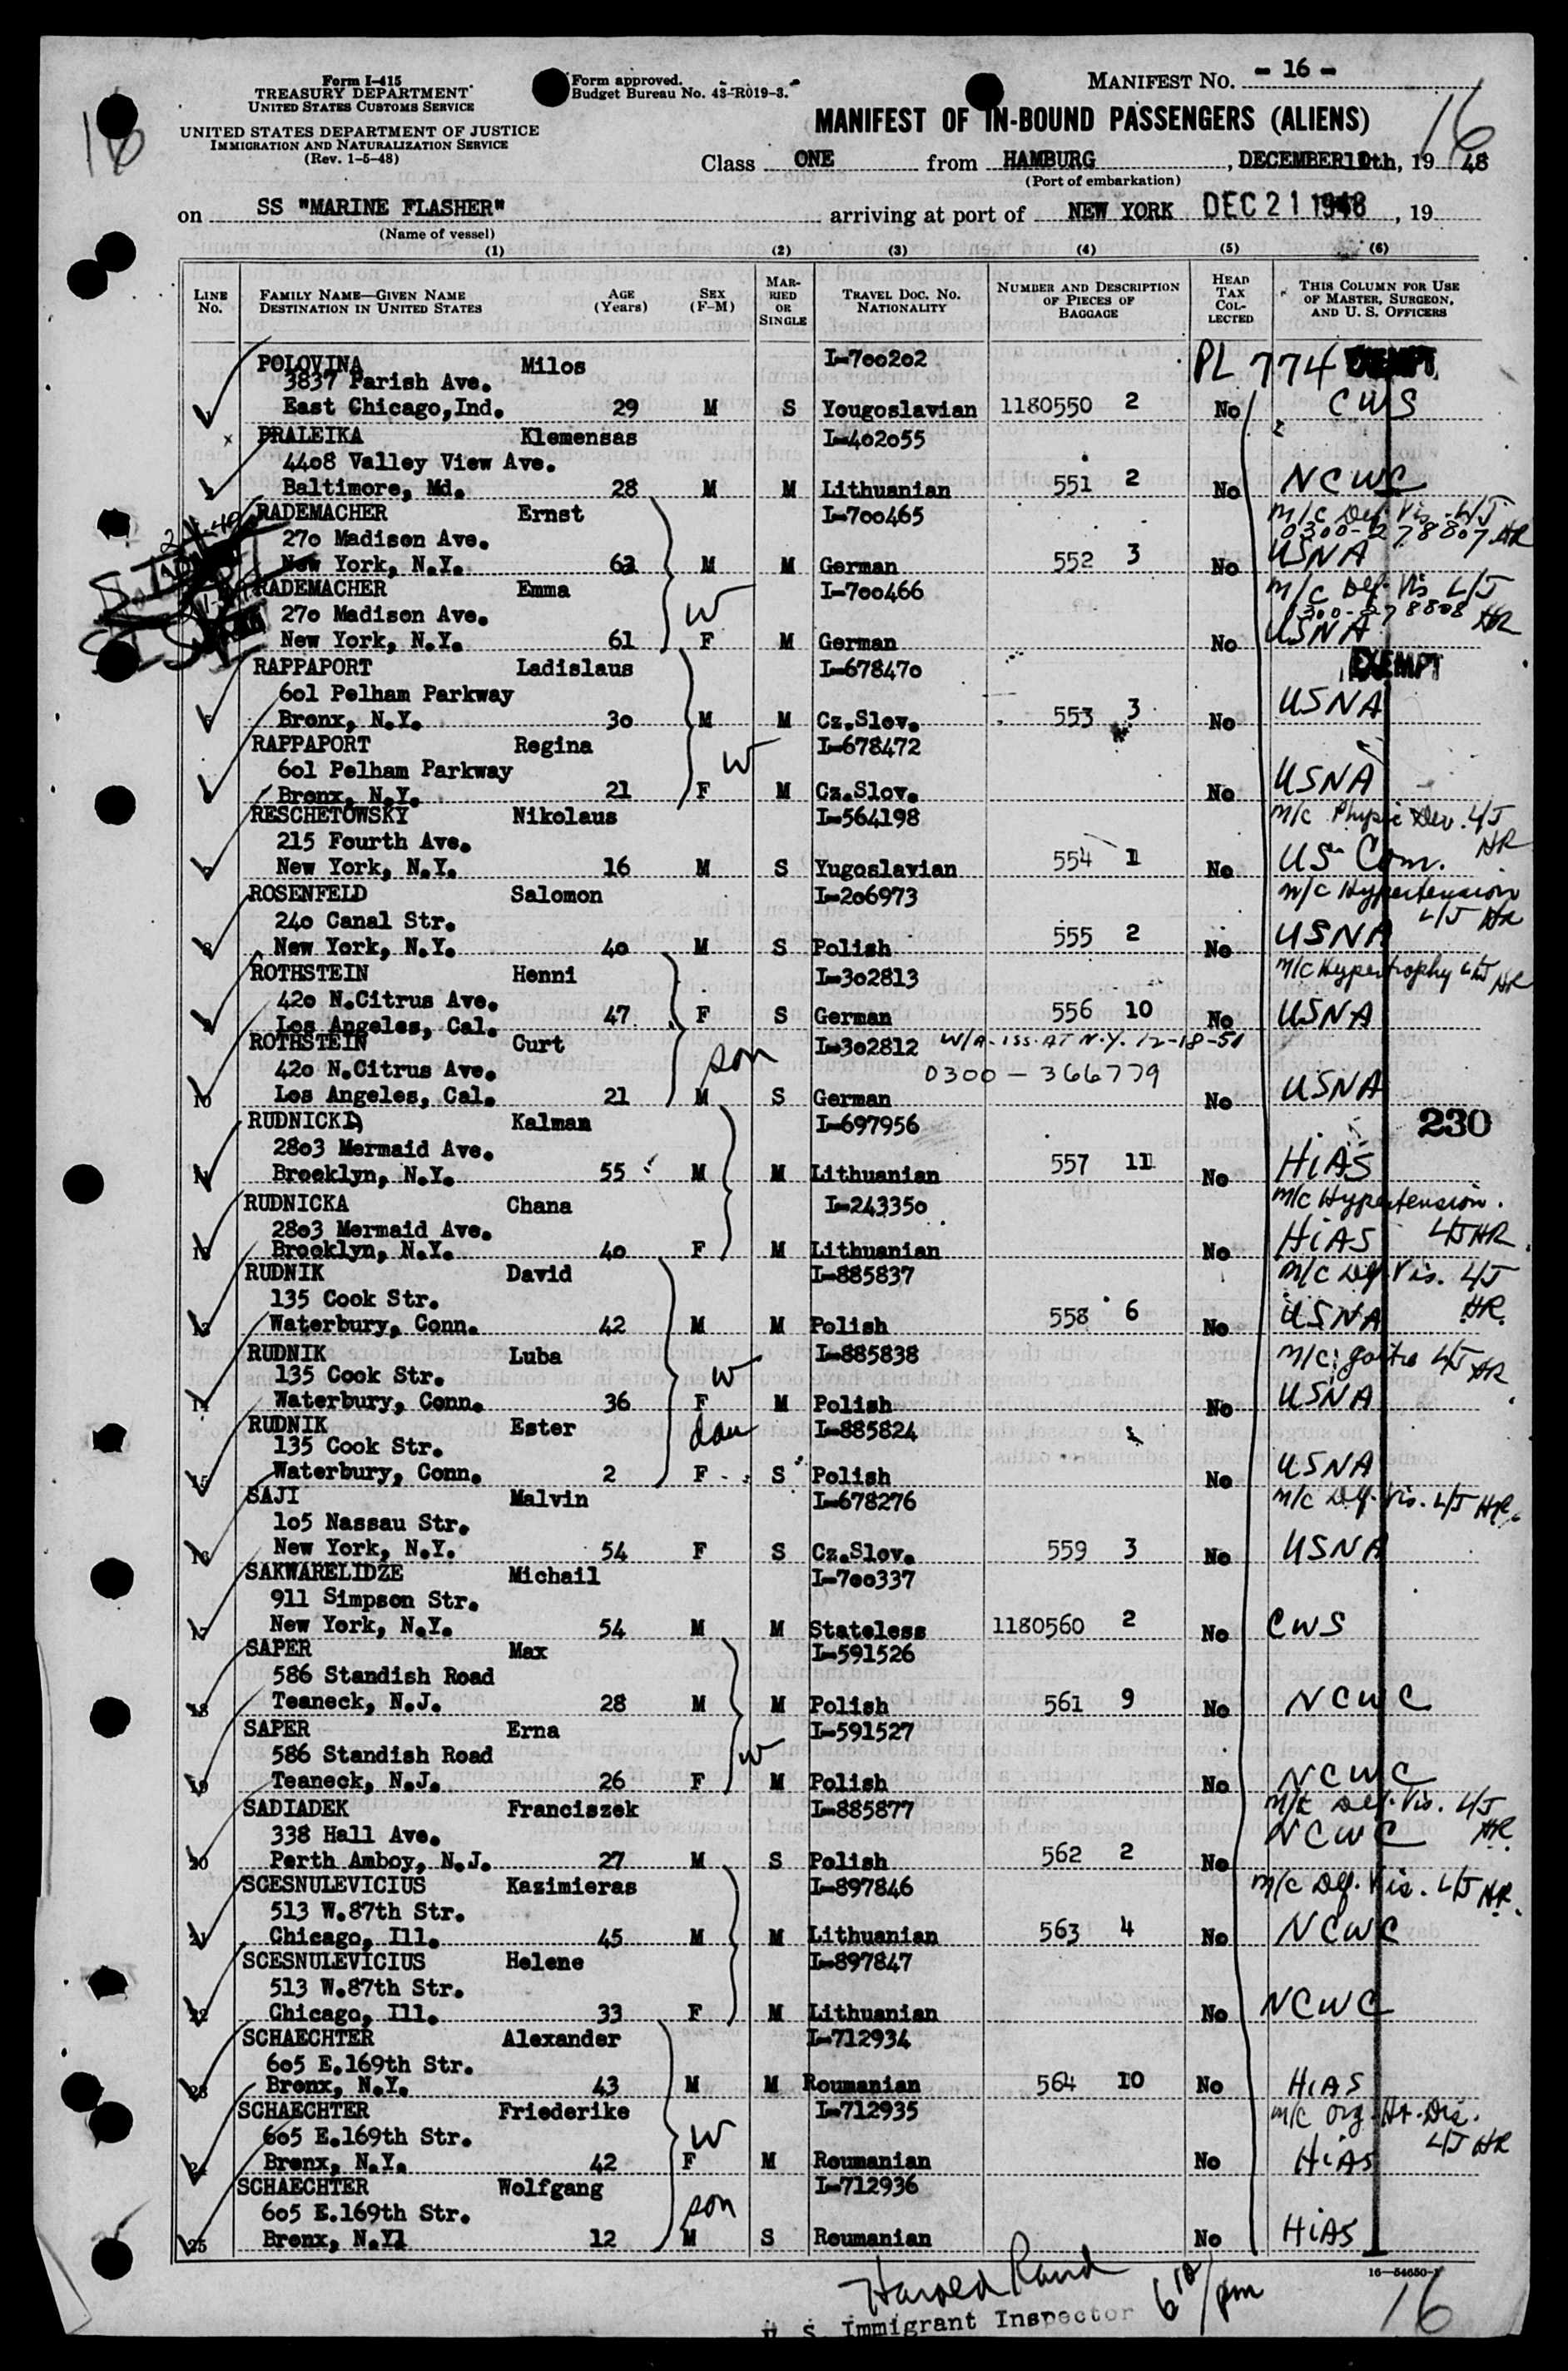 Form I-415
TREASURY DEPARTMENT
UNITED STATES CUSTOMS SERVICE
UNITED STATES DEPARTMENT OF JUSTICE
IMMIGRATION AND NATURALIZATION SERVICE
(Rev. 1-5-48)
Form approved.
Budget Bureau No. 43-R019-3.
MANIFEST No. - 16 -
16
MANIFEST OF IN-BOUND PASSENGERS (ALIENS)
Class ONE from HAMBURG, DECEMBER 10th, 19 48
(Port of embarkation)
on SS "MARINE FLASHER" arriving at port of NEW YORK DEC 21 1948, 19
(Name of vessel)
(1) (2) (3) (4) (5) (6)
LINE No. FAMILY NAME—GIVEN NAME DESTINATION IN UNITED STATES AGE (Years) SEX (F-M) MARRIED OR SINGLE TRAVEL DOC. No. NATIONALITY NUMBER AND DESCRIPTION OF PIECES OF BAGGAGE HEAD TAX COLLECTED THIS COLUMN FOR USE OF MASTER, SURGEON, AND U. S. OFFICERS
POLOVINA Milos I-700202 PL 774 EXEMPT
3837 Parish Ave.
East Chicago, Ind. 29 M S Yougoslavian 1180550 2 No CWS
PRALEIKA Klemensas I-402055
4408 Valley View Ave.
Baltimore, Md. 28 M M Lithuanian 551 2 No NCWC
RADEMACHER Ernst I-700465 m/c Def. Vis. L/J
270 Madison Ave. 0300-278807 HR
New York, N.Y. 63 M M German 552 3 No USNA
RADEMACHER Emma I-700466 m/c Def. Vis L/J
270 Madison Ave. W 0300-278808 HR
New York, N.Y. 61 F M German No USNA
RAPPAPORT Ladislaus I-678470 EXEMPT
601 Pelham Parkway
Bronx, N.Y. 30 M M Cz.Slov. 553 3 No USNA
RAPPAPORT Regina W I-678472
601 Pelham Parkway
Bronx, N.Y. 21 F M Cz.Slov. No USNA
RESCHETOWSKY Nikolaus I-564198 m/c Physic Dev. L/J HR
215 Fourth Ave.
New York, N.Y. 16 M S Yugoslavian 554 1 No US Com.
ROSENFELD Salomon I-206973 m/c Hypertension
240 Canal Str. L/J HR
New York, N.Y. 40 M S Polish 555 2 No USNA
ROTHSTEIN Henni I-302813 m/c Hypertrophy L/J HR
420 N.Citrus Ave.
Los Angeles, Cal. 47 F S German 556 10 No USNA
ROTHSTEIN Curt son I-302812 W/A-ISS. AT N.Y. 12-18-51
420 N.Citrus Ave. 0300-366779
10 Los Angeles, Cal. 21 M S German No USNA
RUDNICKI Kalman I-697956 230
2803 Mermaid Ave.
11 Brooklyn, N.Y. 55 M M Lithuanian 557 11 No HIAS
RUDNICKA Chana I-243350 m/c Hypertension.
2803 Mermaid Ave. L/J HR
12 Brooklyn, N.Y. 40 F M Lithuanian No HIAS
RUDNIK David I-885837 m/c Def. Vis. L/J
135 Cook Str. HR.
13 Waterbury, Conn. 42 M M Polish 558 6 No USNA
RUDNIK Luba W I-885838 m/c: gastro L/J HR
135 Cook Str.
14 Waterbury, Conn. 36 F M Polish No USNA
RUDNIK Ester dau I-885824
135 Cook Str.
15 Waterbury, Conn. 2 F S Polish No USNA
SAJI Malvin I-678276 m/c Def. Vis. L/J HR.
105 Nassau Str.
16 New York, N.Y. 54 F S Cz.Slov. 559 3 No USNA
SAKWARELIDZE Michail I-700337
911 Simpson Str.
17 New York, N.Y. 54 M M Stateless 1180560 2 No CWS
SAPER Max I-591526
586 Standish Road
18 Teaneck, N.J. 28 M M Polish 561 9 No NCWC
SAPER Erna I-591527
586 Standish Road W
19 Teaneck, N.J. 26 F M Polish No NCWC
SADIADEK Franciszek I-885877 m/c Def. Vis. L/J
338 Hall Ave. HR.
20 Perth Amboy, N.J. 27 M S Polish 562 2 No NCWC
SCESNULEVICIUS Kazimieras I-897846 m/c Def. Vis. L/J HR.
513 W.87th Str.
21 Chicago, Ill. 45 M M Lithuanian 563 4 No NCWC
SCESNULEVICIUS Helene I-897847
513 W.87th Str.
22 Chicago, Ill. 33 F M Lithuanian No NCWC
SCHAECHTER Alexander I-712934
605 E.169th Str.
23 Bronx, N.Y. 43 M M Roumanian 564 10 No HIAS
SCHAECHTER Friederike I-712935 m/c org. Ht. Dis.
605 E.169th Str. W L/J HR
24 Bronx, N.Y. 42 F M Roumanian No HIAS
SCHAECHTER Wolfgang son I-712936
605 E.169th Str.
25 Bronx, N.Y. 12 M S Roumanian No HIAS
16—54650-1
Harold Rand 6 10/pm
U. S. Immigrant Inspector
16